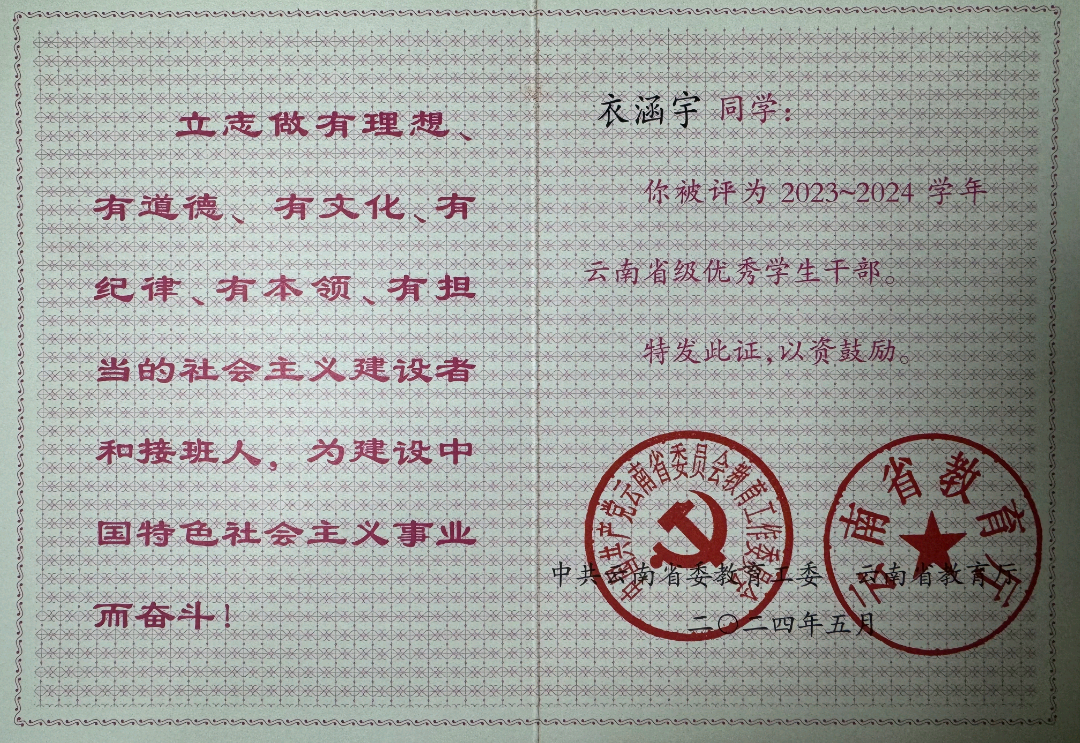 立志做有理想、
有道德、有文化、有
纪律、有本领、有担
当的社会主义建设者
和接班人，为建设中
国特色社会主义事业
而奋斗！
衣涵宇 同学：
你被评为 2023~2024 学年
云南省级优秀学生干部。
特发此证，以资鼓励。
中国共产党云南省委员会教育工作委员会
云南省教育厅
中共云南省委教育工委 云南省教育厅
二〇二四年五月